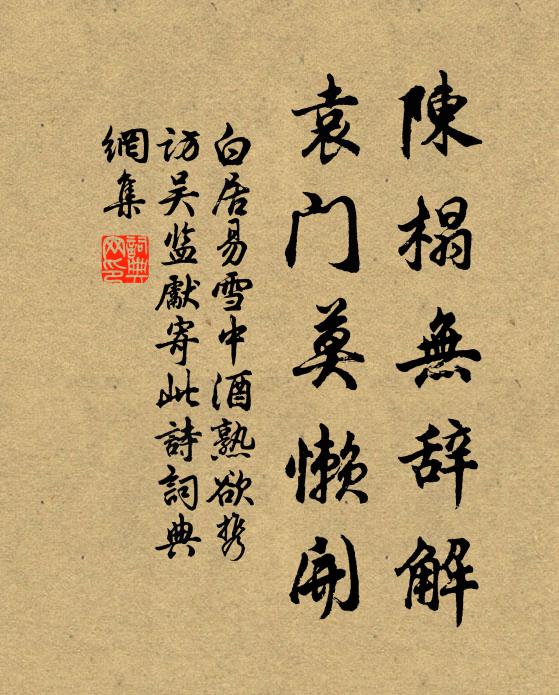 陳榻無辞解
袁门莫懒開
白居易雪中酒熟欲携
访吴监獻寄此詩詞典
網集
詞典
网印